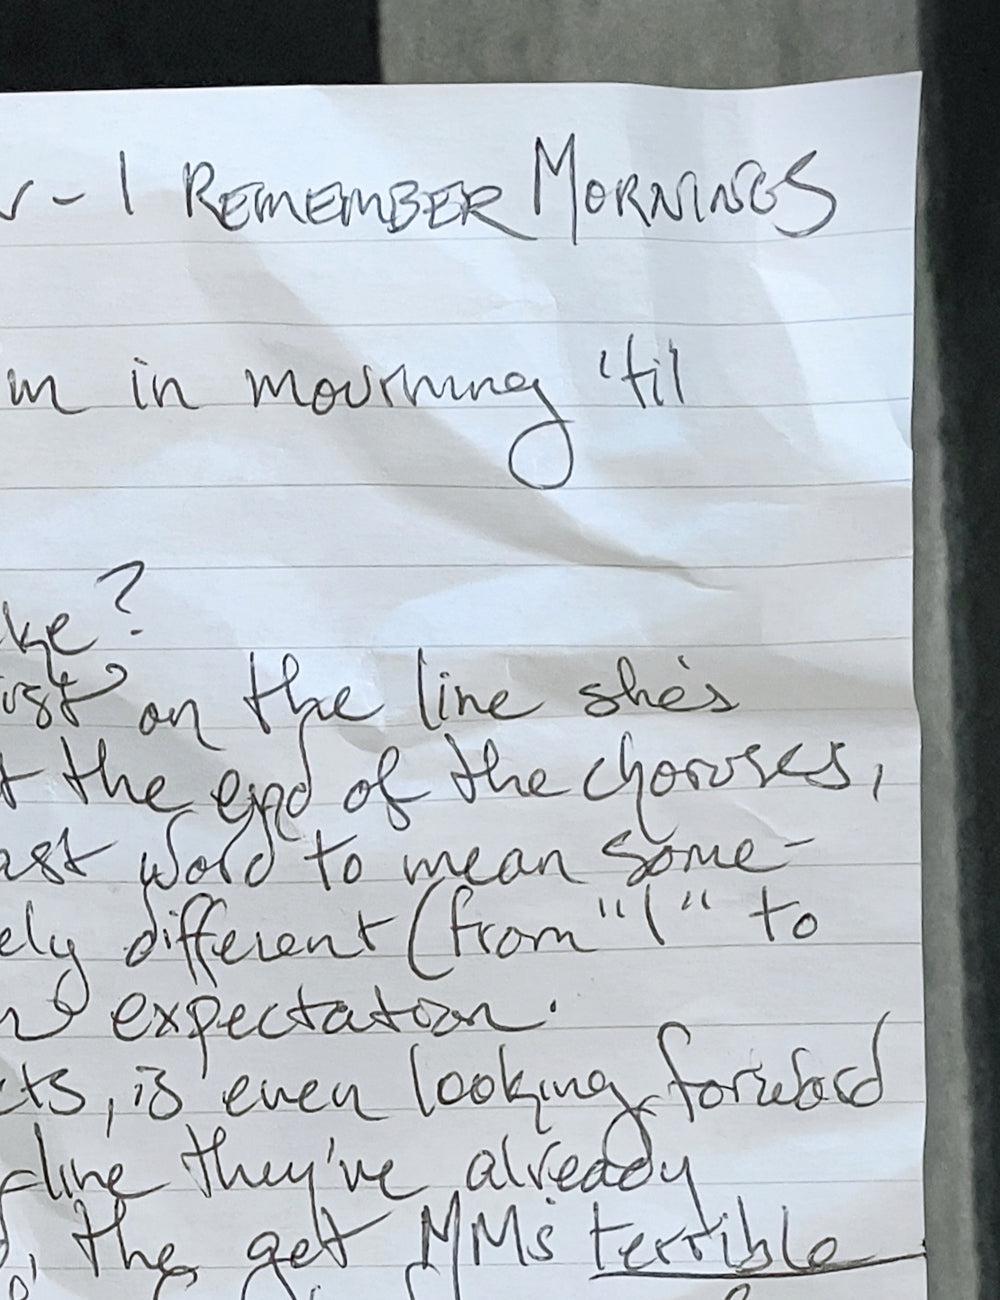 - I REMEMBER MORNINGS
in mourning 'til
?
on the line she's
the end of the choruses,
word to mean some-
different (from "I" to
expectation.
, is even looking forward
line they've already
, the get MMs terrible